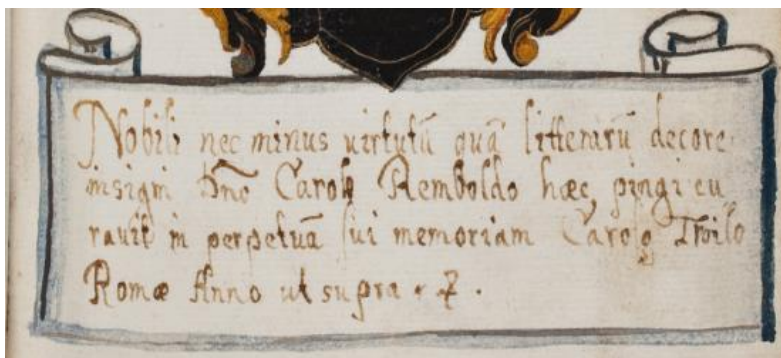 Nobili nec minus uirtutū quā litterarū decore
insigni Dño Carolo Remboldo hæc pingi cu
rauit in perpetuā sui memoriam Carolꝰ Troilo
Romæ Anno ut supra